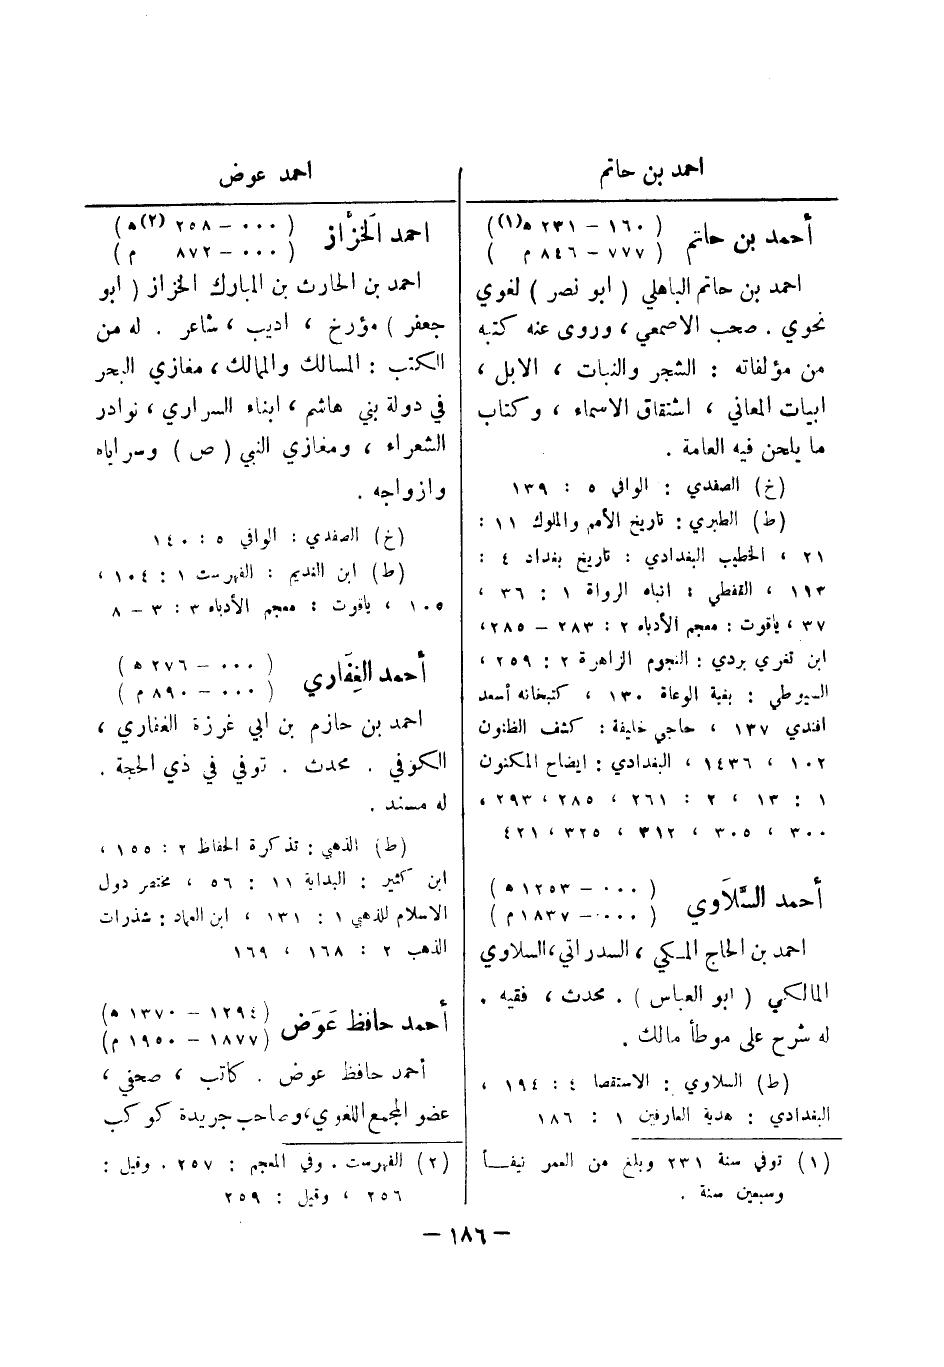 احمد بن حاتم
أحمد بن حاتم
( ١٦٠ – ٢٣١ ه(١))
( ٧٧٧ – ٨٤٦ م )
احمد بن حاتم الباهلي ( ابو نصر ) لغوي
نحوي . صحب الاصمعي ، وروى عنه كتبه
من مؤلفاته : الشجر والنبات ، الابل ،
ابيات المعاني ، اشتقاق الاسماء ، وكتاب
ما يلحن فيه العامة .
(خ) الصفدي : الوافي ٥ : ١٣٩
(ط) الطبري : تاريخ الأمم والملوك ١١ :
٢١ ، الخطيب البغدادي : تاريخ بغداد ٤ :
١١٣ ، القفطي : انباه الرواة ١ : ٣٦ ،
٣٧ ، ياقوت : معجم الأدباء ٢ : ٢٨٣ – ٢٨٥ ،
ابن تغري بردي : النجوم الزاهرة ٢ : ٢٥٩ ،
السيوطي : بغية الوعاة ١٣٠ ، كتبخانه أسعد
افندي ١٣٧ ، حاجي خليفة : كشف الظنون
١٠٢ ، ١٤٣٦ ، البغدادي : ايضاح المكنون
١ : ١٣ ، ٢ : ٢٦١ ، ٢٨٥ ، ٢٩٣ ،
٣٠٠ ، ٣٠٥ ، ٣١٢ ، ٣٢٥ ، ٤٢١
أحمد السَّلَاوي
( ٠٠٠ – ١٢٥٣ ه )
( ٠٠٠ – ١٨٣٧ م )
احمد بن الحاج المكي ، السدراتي ، السلاوي
المالكي ( ابو العباس ) . محدث ، فقيه .
له شرح على موطأ مالك .
(ط) السلاوي : الاستقصا ٤ : ١٩٤ ،
البغدادي : هدية العارفين ١ : ١٨٦
(١) توفي سنة ٢٣١ وبلغ من العمر نيفــأ
وسبعين سنة .
احمد عوض
احمد الخَزَّاز
( ٠٠٠ – ٢٥٨ (٢) ه )
( ٠٠٠ – ٨٧٢ م )
احمد بن الحارث بن المبارك الخزاز ( ابو
جعفر ) مؤرخ ، اديب ، شاعر . له من
الكتب : المسالك والممالك ، مغازي البحر
في دولة بني هاشم ، ابناء السراري ، نوادر
الشعراء ، ومغازي النبي ( ص ) وسراياه
وازواجه .
(خ) الصفدي : الوافي ٥ : ١٤٠
(ط) ابن النديم : الفهرست ١ : ١٠٤ ،
١٠٥ ، ياقوت : معجم الأدباء ٣ : ٣ – ٨
أحمد الغِفَاري
( ٠٠٠ – ٢٧٦ ه )
( ٠٠٠ – ٨٩٠ م )
احمد بن حازم بن ابي غرزة الغفاري ،
الكوفي . محدث . توفي في ذي الحجة .
له مسند .
(ط) الذهبي : تذكرة الحفاظ ٢ : ١٥٥ ،
ابن كثير : البداية ١١ : ٥٦ ، مختصر دول
الاسلام للذهبي ١ : ١٣١ ، ابن العماد : شذرات
الذهب ٢ : ١٦٨ ، ١٦٩
أحمد حافظ عَوَض
( ١٢٩٤ – ١٣٧٠ ه )
( ١٨٧٧ – ١٩٥٠ م )
أحمد حافظ عوض . كاتب ، صحفي ،
عضو المجمع اللغوي ، وصاحب جريدة كوكب
(٢) الفهرست . وفي المعجم : ٢٥٧ . وقيل :
٢٥٦ ، وقيل : ٢٥٩
– ١٨٦ –